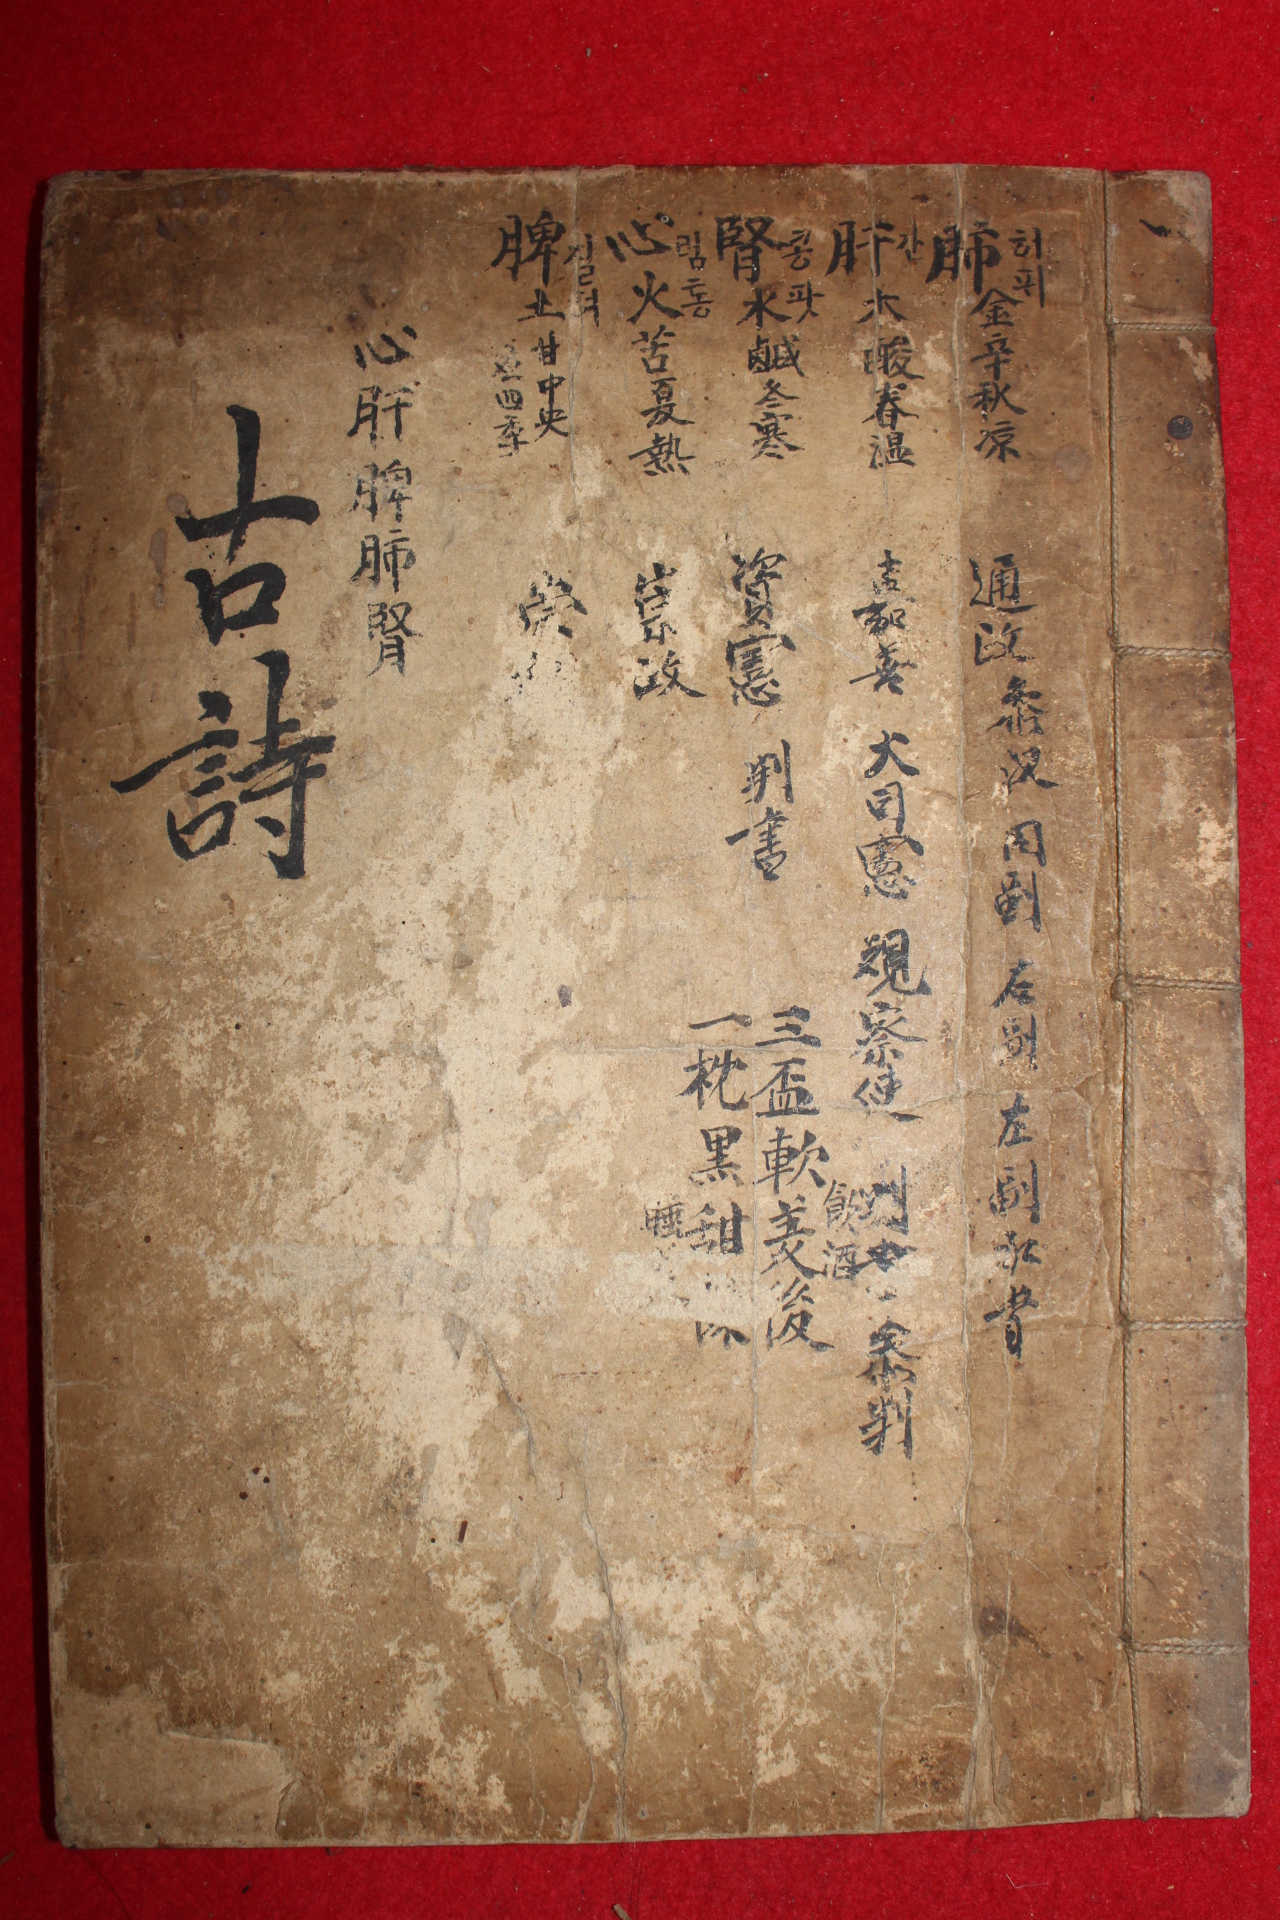 肺 허파 金辛秋凉
肝 간 木酸春温
腎 콩팟 水鹹冬寒
心 림통 火苦夏熱
脾 질허 土甘中央
四季
通政 參議 同副 右副 左副
嘉善 大司憲 觀察使 參判
資憲 判書
崇政
崇
三盃軟美後 飲酒
一枕黑甜 睡
心肝脾肺腎
古詩